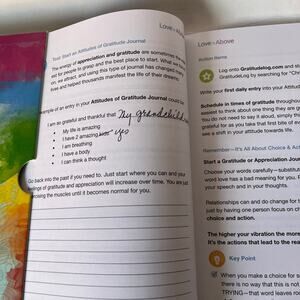 Love Above
Tool: Start an Attitudes of Gratitude Journal
The energy of appreciation and gratitude are sometimes the
est for people to grasp and the best place to start. What we
on, we attract, and using this type of journal has changed
lives and helped thousands manifest the life of their dreams.
Example of an entry in your Attitudes of Gratitude Journal could be
I am so grateful and thankful that My grandchild
• My life is amazing
• I have 2 amazing yes
• I am breathing
• I have a body
• I can think a thought
Go back into the past if you need to. Just start where you can and your
feelings of gratitude and appreciation will increase over time. You are just
exercising the muscles until it becomes normal for you.
Love Above
Action Items
Log onto Gratitudelog.com and
GratitudeLog by searching for
Write your first daily entry into your Attitudes
Schedule in times of gratitude throughout
easiest to think about one time they are
You do not need to say it aloud, simply
grateful for as you take that first bite of
see a shift in your attitude towards life.
Remember—It's All About Choice &
Start a Gratitude or Appreciation
Choose your words carefully—substitute
word love has a bad meaning for you.
your speech and in your thoughts.
Relationships can and do change for
just by having one person focus on
choice and action.
The higher your vibration the more
It's the actions that lead to the
Key Point
When you make a choice for
there is no way that this is not
TRYING—that word leaves